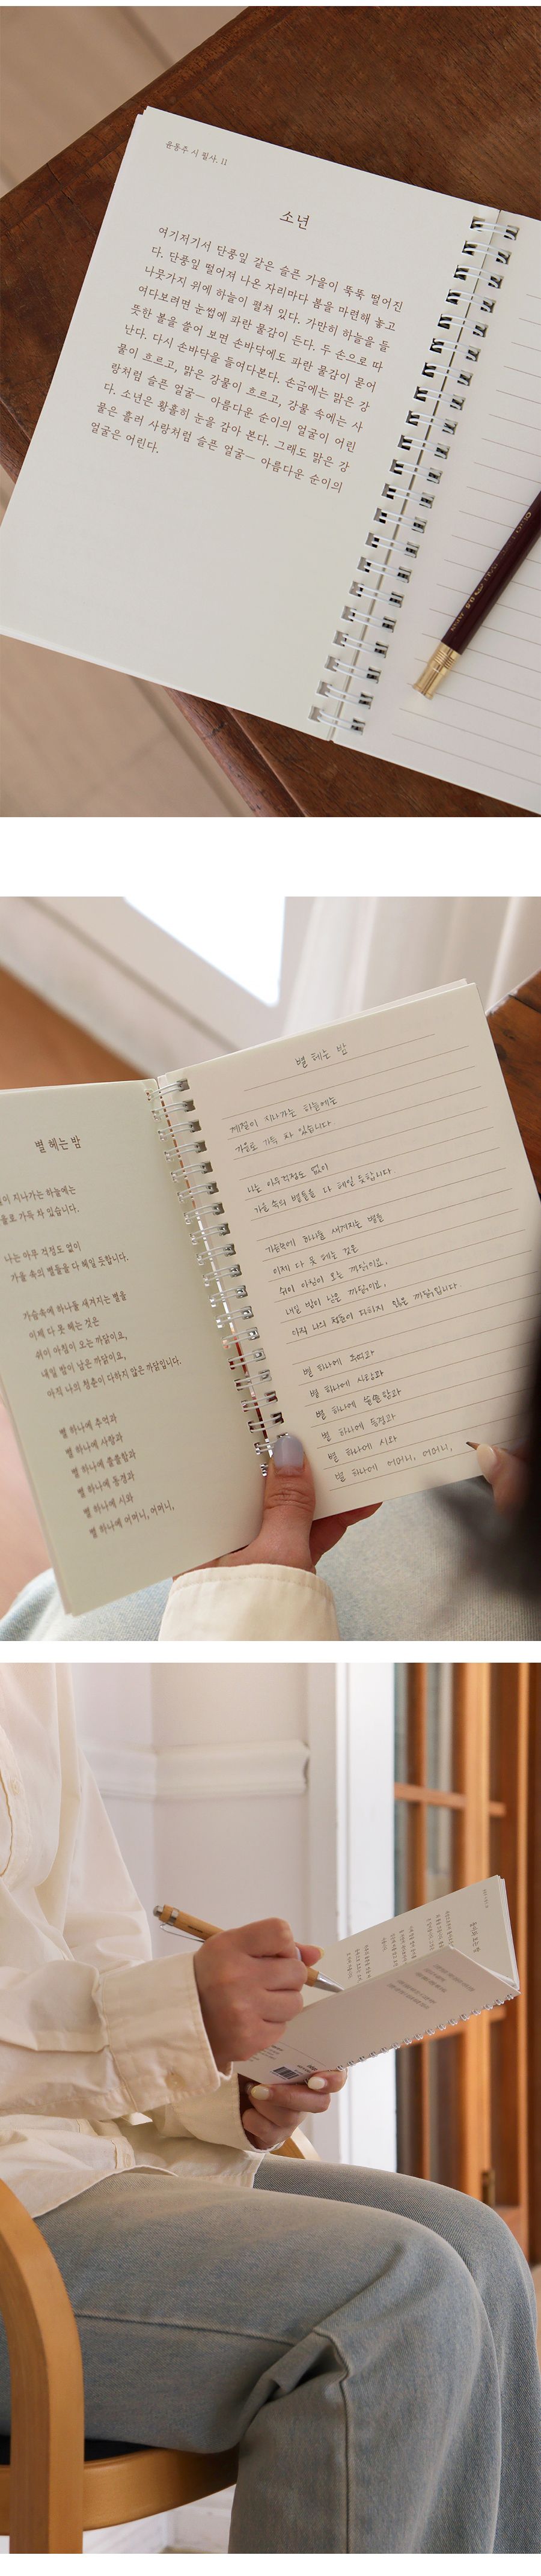 윤동주 시 필사. 11
소년
여기저기서 단풍잎 같은 슬픈 가을이 뚝뚝 떨어진
다. 단풍잎 떨어져 나온 자리마다 봄을 마련해 놓고
나뭇가지 위에 하늘이 펼쳐 있다. 가만히 하늘을 들
여다보려면 눈썹에 파란 물감이 든다. 두 손으로 따
뜻한 볼을 쓸어 보면 손바닥에도 파란 물감이 묻어
난다. 다시 손바닥을 들여다본다. 손금에는 맑은 강
물이 흐르고, 맑은 강물이 흐르고, 강물 속에는 사
랑처럼 슬픈 얼굴— 아름다운 순이의 얼굴이 어린
다. 소년은 황홀히 눈을 감아 본다. 그래도 맑은 강
물은 흘러 사랑처럼 슬픈 얼굴— 아름다운 순이의
얼굴은 어린다.
별 헤는 밤
이 지나가는 하늘에는
을로 가득 차 있습니다.
나는 아무 걱정도 없이
가을 속의 별들을 다 헤일 듯합니다.
가슴속에 하나둘 새겨지는 별을
이제 다 못 헤는 것은
쉬이 아침이 오는 까닭이요,
내일 밤이 남은 까닭이요,
아직 나의 청춘이 다하지 않은 까닭입니다.
별 하나에 추억과
별 하나에 사랑과
별 하나에 쓸쓸함과
별 하나에 동경과
별 하나에 시와
별 하나에 어머니, 어머니,
별 헤는 밤
계절이 지나가는 하늘에는
가을로 가득 차 있습니다
나는 아무걱정도 없이
가을 속의 별들을 다 헤일 듯합니다
가슴속에 하나둘 새겨지는 별을
이제 다 못 헤는 것은
쉬이 아침이 오는 까닭이요,
내일 밤이 남은 까닭이요,
아직 나의 청춘이 다하지 않은 까닭입니다.
별 하나에 추억과
별 하나에 사랑과
별 하나에 쓸쓸함과
별 하나에 동경과
별 하나에 시와
별 하나에 어머니, 어머니,